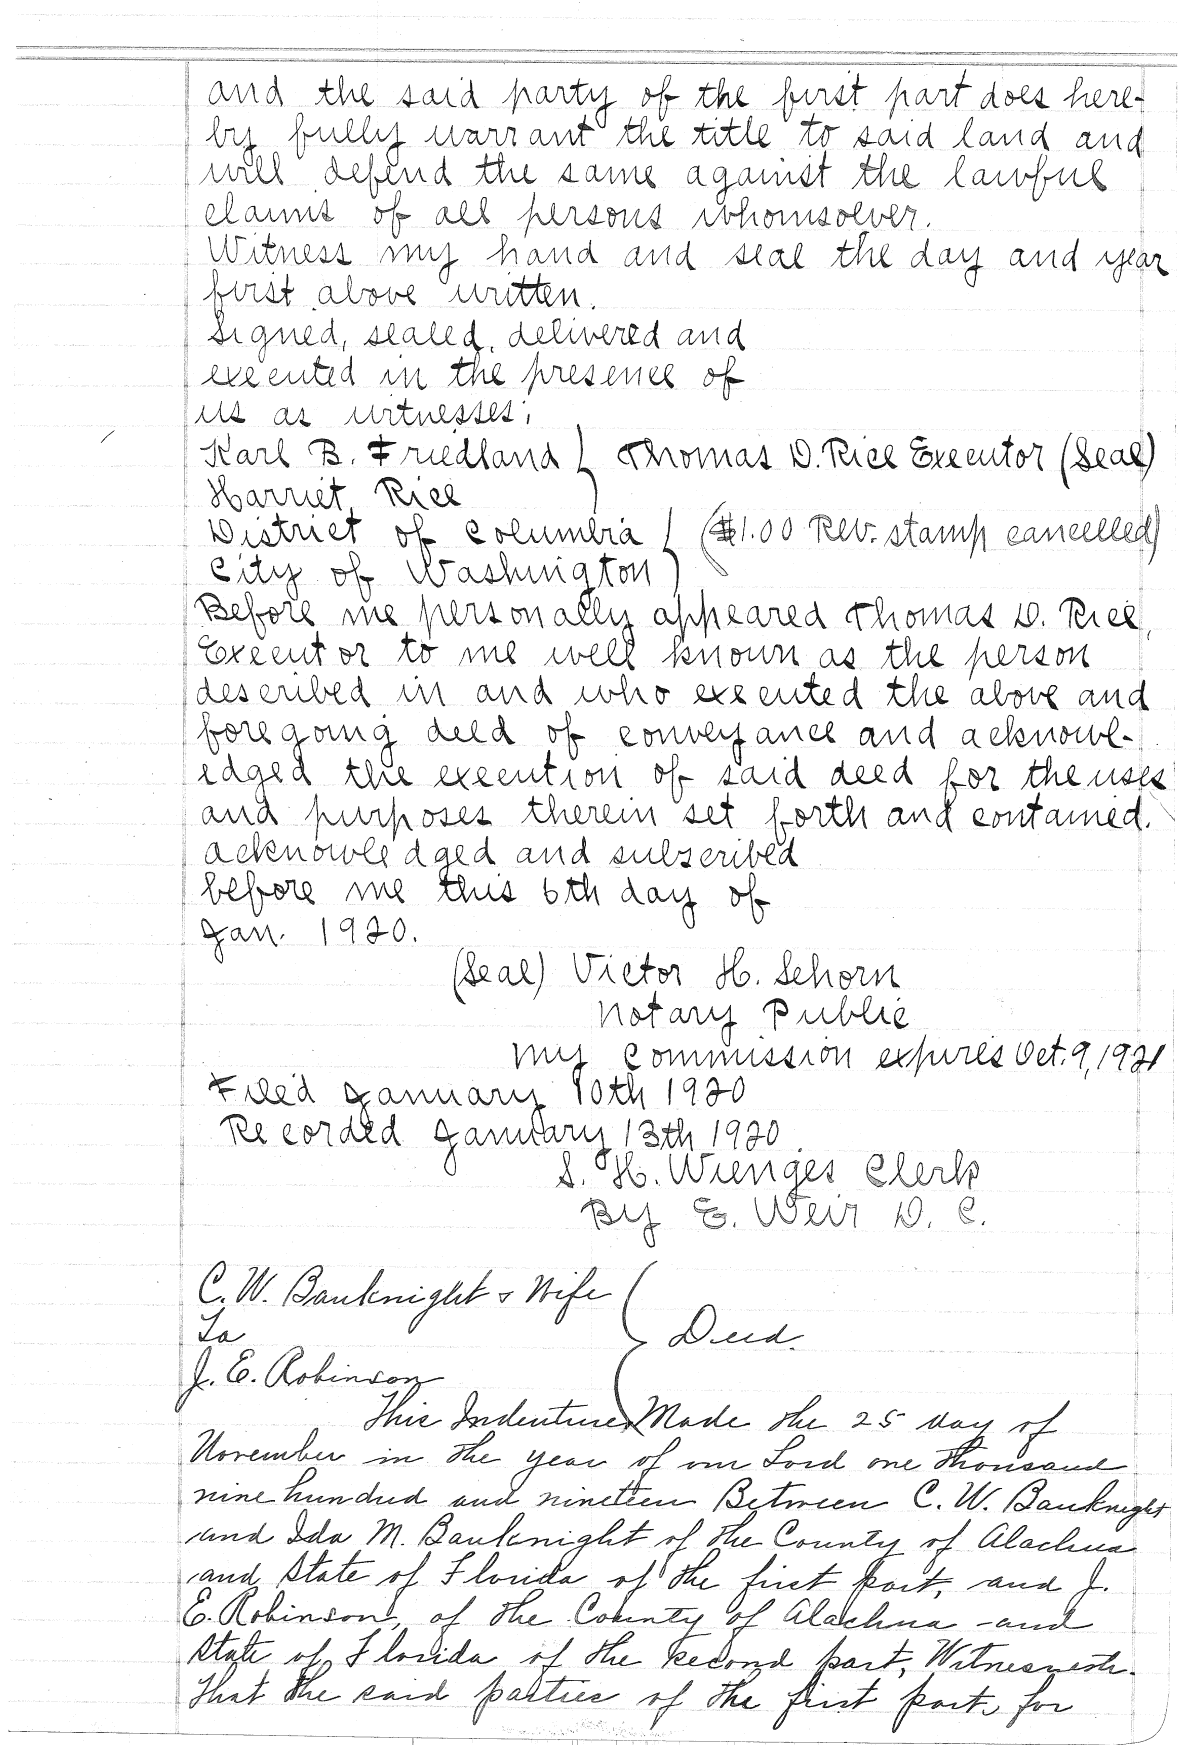 and the said party of the first part does here-
by fully warrant the title to said land and
will defend the same against the lawful
claims of all persons whomsoever.
Witness my hand and seal the day and year
first above written.
Signed, sealed, delivered and
executed in the presence of
us as witnesses:
Karl B. Friedland } Thomas D. Rice Executor (Seal)
Harriet Rice
District of Columbia } ($1.00 Rev. stamp cancelled)
City of Washington
Before me personally appeared Thomas D. Rice,
Executor to me well known as the person
described in and who executed the above and
foregoing deed of conveyance and acknowl-
edged the execution of said deed for the uses
and purposes therein set forth and contained.
acknowledged and subscribed
before me this 6th day of
Jan. 1920.
(Seal) Victor H. Schorn
Notary Public
My Commission expires Oct. 9, 1921
Filed January 10th 1920
Recorded January 13th 1920
S. H. Wienges Clerk
By E. Weir D. C.
C. W. Bauknight & Wife
To } Deed.
J. E. Robinson
This Indenture, Made the 25 day of
November in the year of our Lord one thousand
nine hundred and nineteen Between C. W. Bauknight
and Ida M. Bauknight of the County of Alachua
and State of Florida of the first part, and J.
E. Robinson, of the County of Alachua and
State of Florida of the second part, Witnesseth.
That the said parties of the first part, for